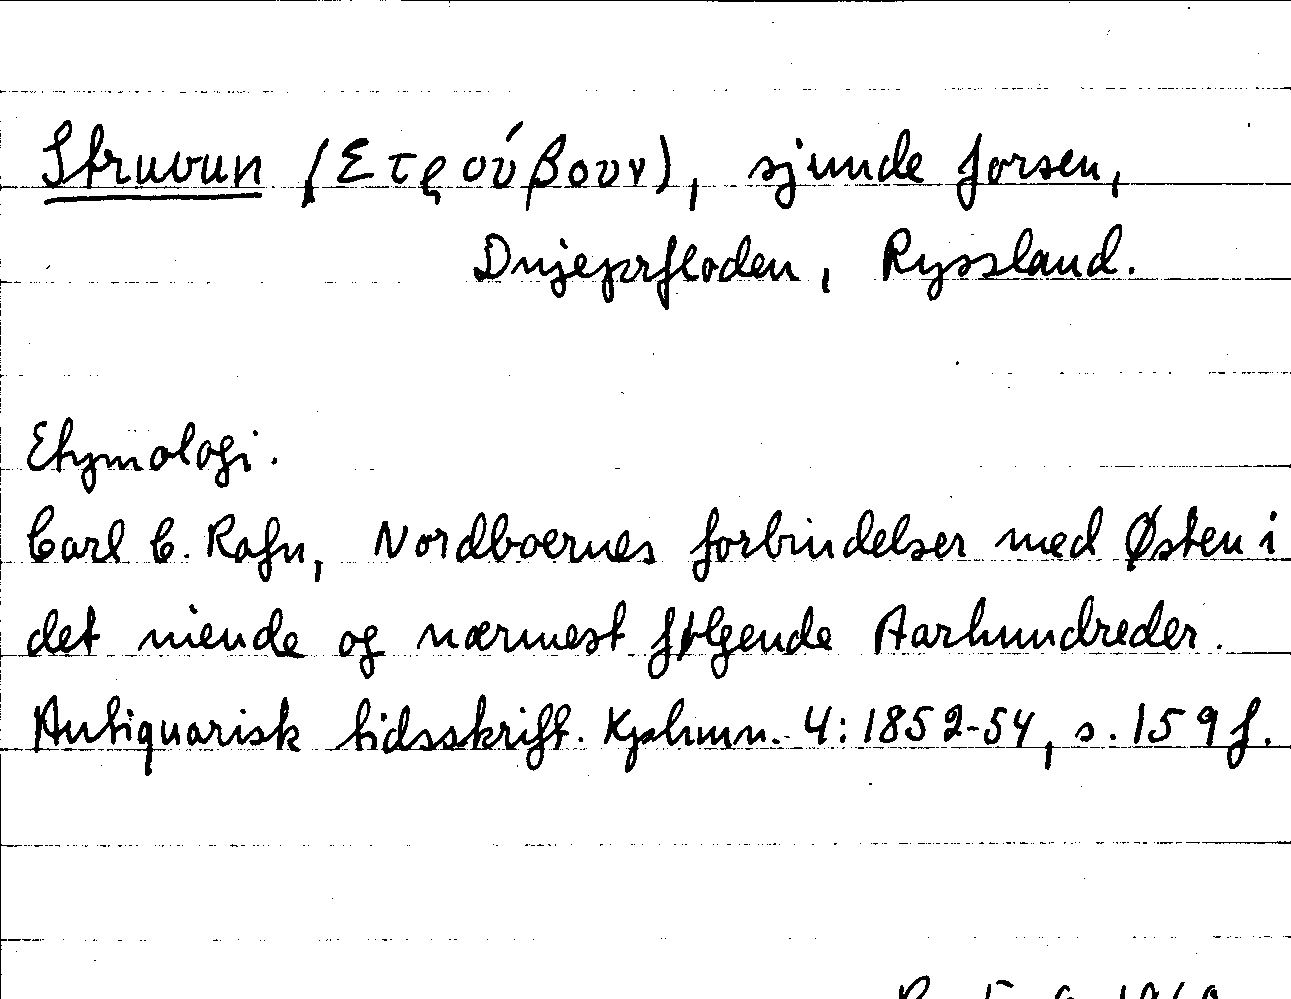 Struvun (Στρούβουν), sjunde forsen,
Dnjeprfloden, Ryssland.
Etymologi.
Carl C. Rafn, Nordboernes forbindelser med Østen i
det niende og nærmest følgende Aarhundreder.
Antiquarisk tidsskrift. Kjøhmn. 4: 1852-54, s. 159 f.